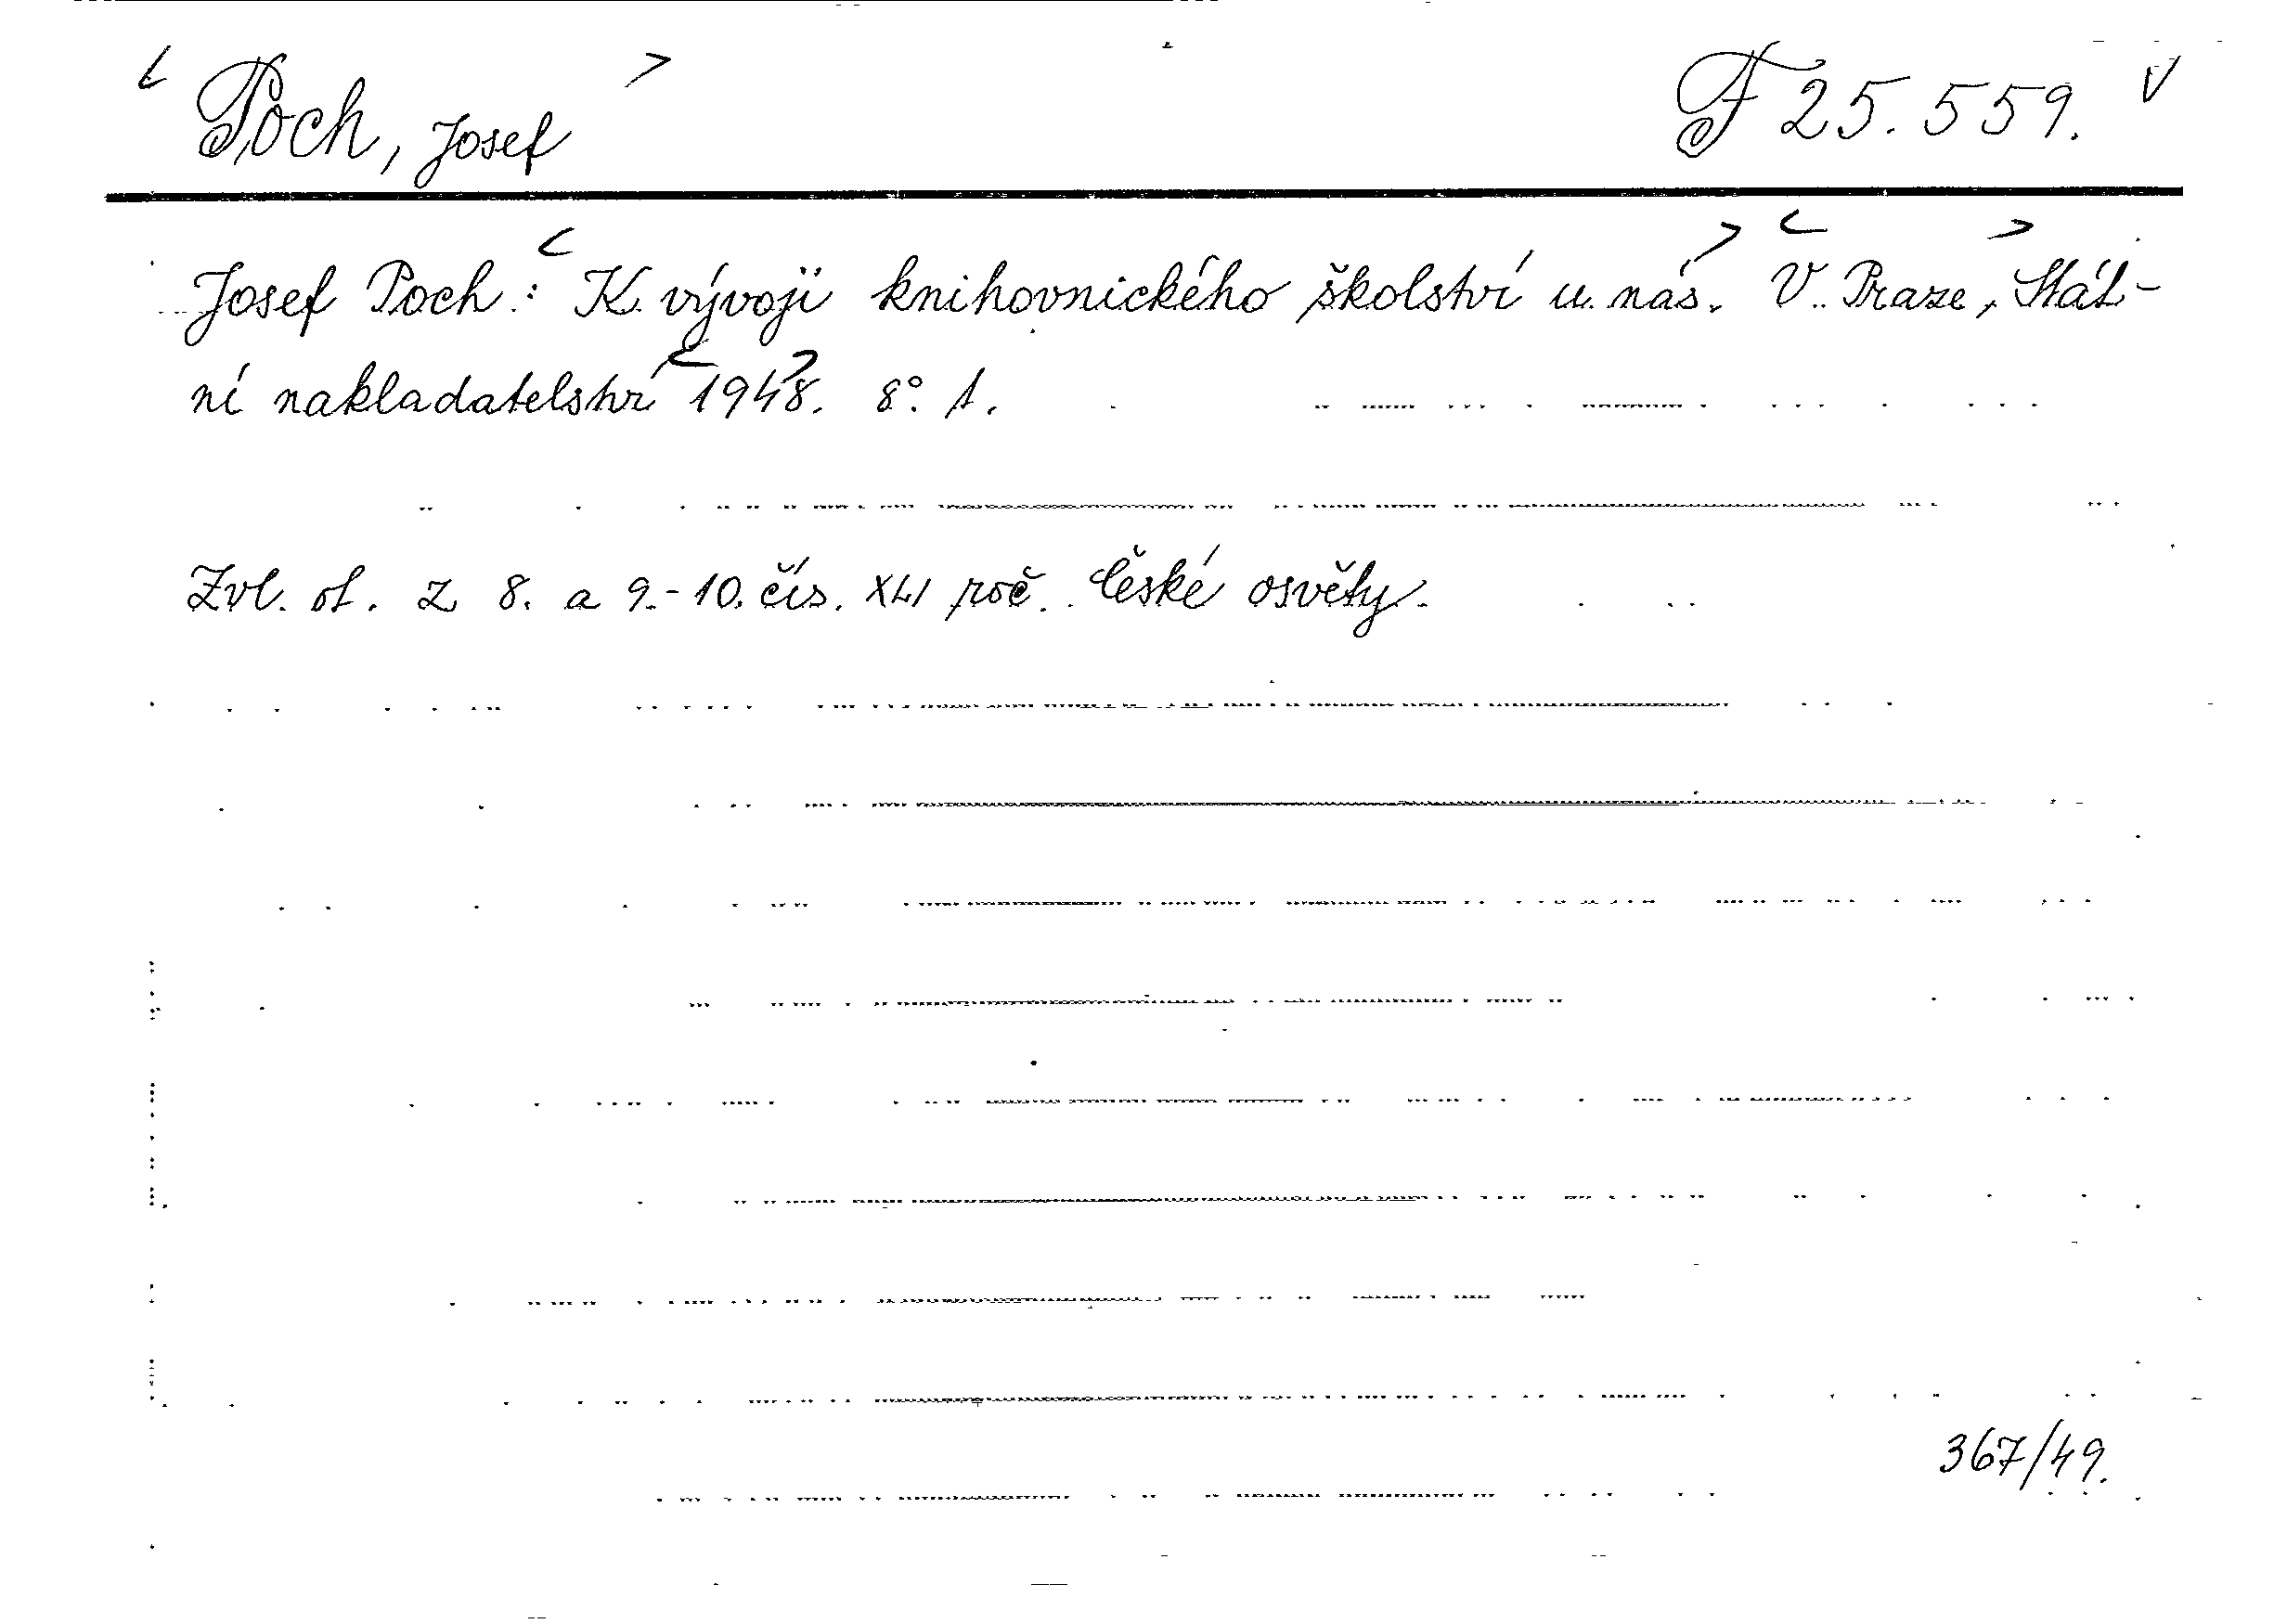 Poch, Josef
F 25.559.
Josef Poch: K vývoji knihovnického školství u nás. V Praze, Stát-
ní nakladatelství 1948. 8°. 1.
Zvl. ot. z 8. a 9.-10. čís. XLI roč. České osvěty.
367/49.